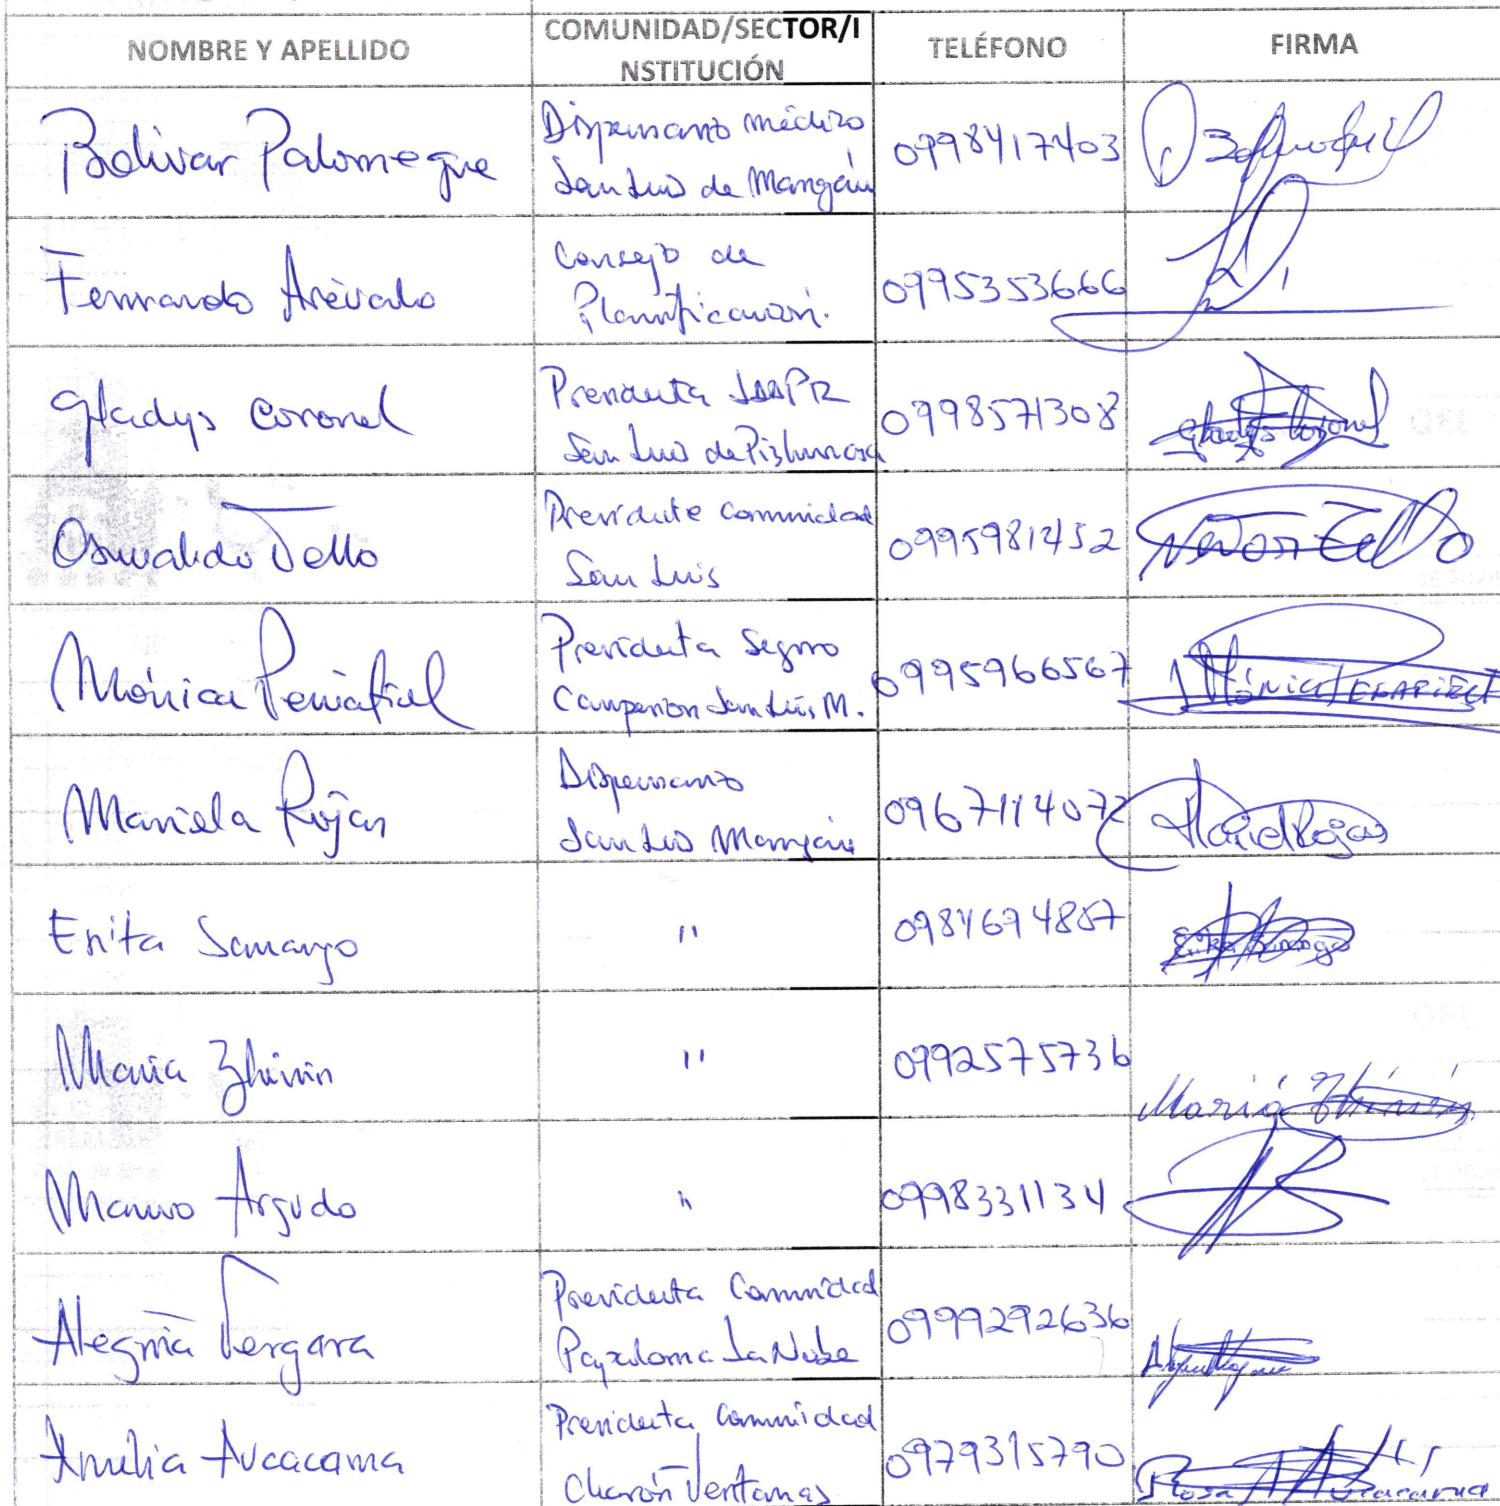 NOMBRE Y APELLIDO
COMUNIDAD/SECTOR/I
NSTITUCIÓN
TELÉFONO
FIRMA
Bolivar Palomeque
Dispensario médico
San Luis de Mangán
0998417403
Fernando Arévalo
Consejo de
Planificación.
0995353666
Gladys Coronel
Presidenta
San Luis de
0998571308
Gladys Coronel
Oswaldo Tello
Presidente Comunidad
San Luis
0995981452
Tello
Mónica Peñafiel
Presidenta Seguro
Campesino San Luis M.
0995966567
Mónica PEÑAFIEL
Mariela Rojas
Dispensario
San Luis Mangán
0967114072
Rojas
Enita
"
0984694887
María Zhinin
"
0992575736
María Zhinin
Argudo
"
0998331134
Alegría Vergara
Presidenta Comunidad
Payaloma La Nube
0999292636
Amelia Aucacama
Presidenta Comunidad
Charón Ventanas
0979315790
Rosa